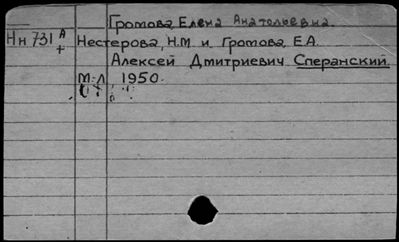 Громова, Елена Анатольевна.
Нн 731 А
+
Нестерова, Н.М и Громова, Е.А.
Алексей Дмитриевич Сперанский.
М-Л 1950.